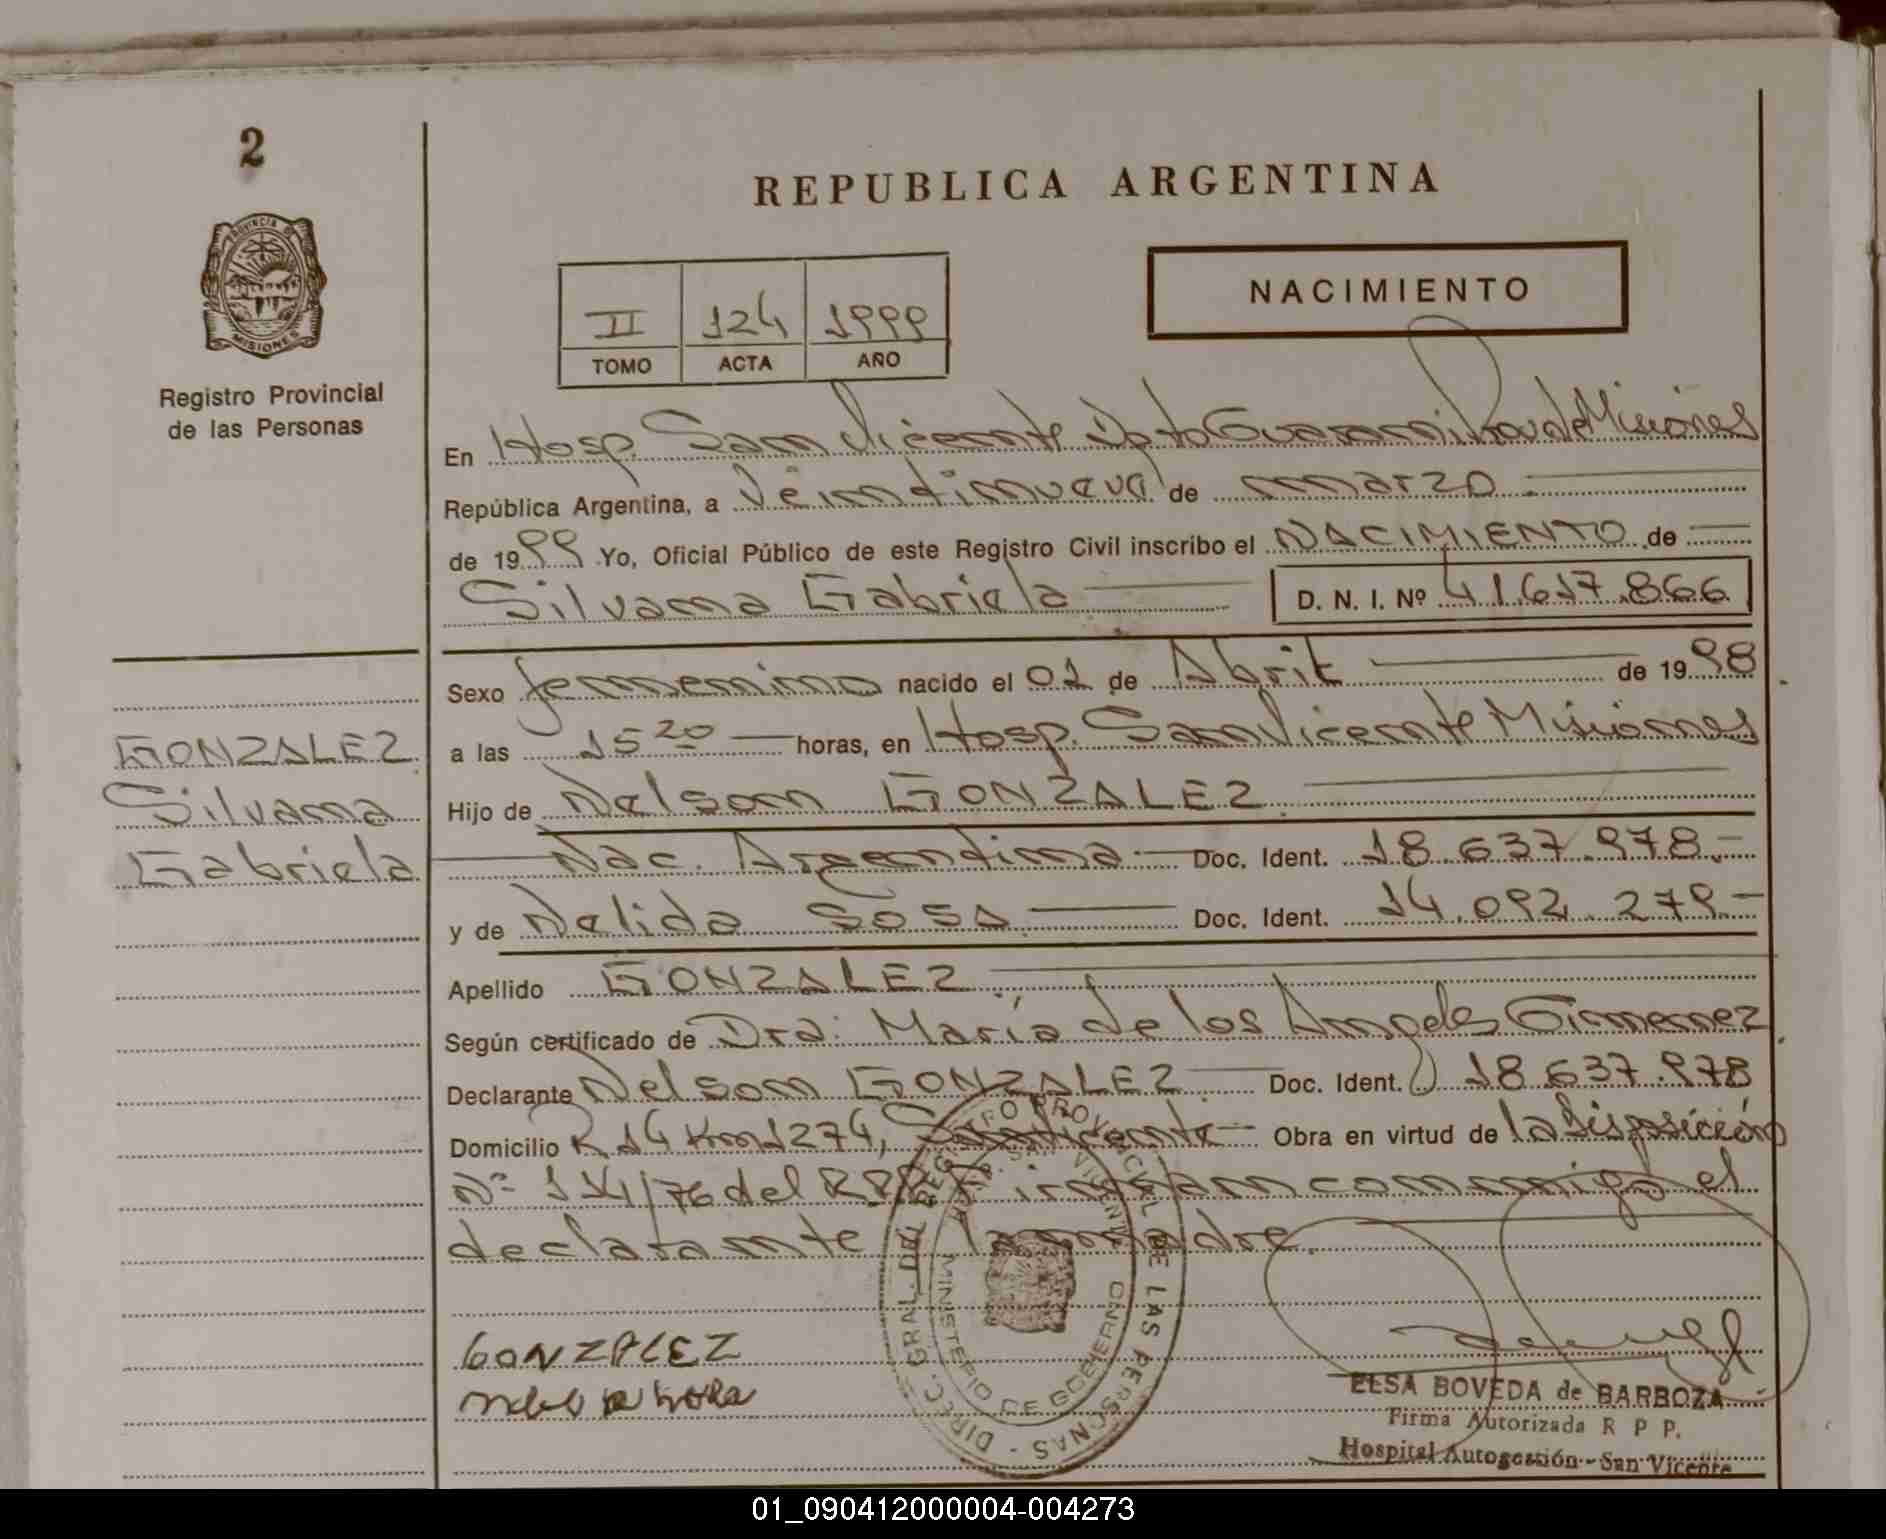 2
PROVINCIA DE
MISIONES
Registro Provincial
de las Personas
REPUBLICA ARGENTINA
II 124 1999
TOMO ACTA AÑO
NACIMIENTO
En Hosp. San Vicente Dpto Guarani Prov de Misiones
República Argentina, a Veintinueve de marzo
de 1999 Yo, Oficial Público de este Registro Civil inscribo el NACIMIENTO de
Silvana Gabriela D. N. I. Nº 41.617.866
Sexo femenino nacido el 01 de Abril de 1998
a las 15 20 horas, en Hosp. San Vicente Misiones
GONZALEZ
Silvana
Gabriela
Hijo de Nelson GONZALEZ
Nac. Argentina Doc. Ident. 18.637.978.-
y de Nelida SOSA Doc. Ident. 14.092.279.-
Apellido GONZALEZ
Según certificado de Dra: María de los Angeles Gimenez
Declarante Nelson GONZALEZ Doc. Ident. 18.637.978
Domicilio R 14 Km 1274, San Vicente Obra en virtud de la Disposición
Nº 114/76 del RPP. firman conmigo el
declarante la madre.
GONZALEZ
DIRCC. GRAL. DEL REGISTRO PROVINCIAL DE LAS PERSONAS
MINISTERIO DE GOBIERNO
ELSA BOVEDA de BARBOZA
Firma Autorizada R P P.
Hospital Autogestión - San Vicente
01_090412000004-004273